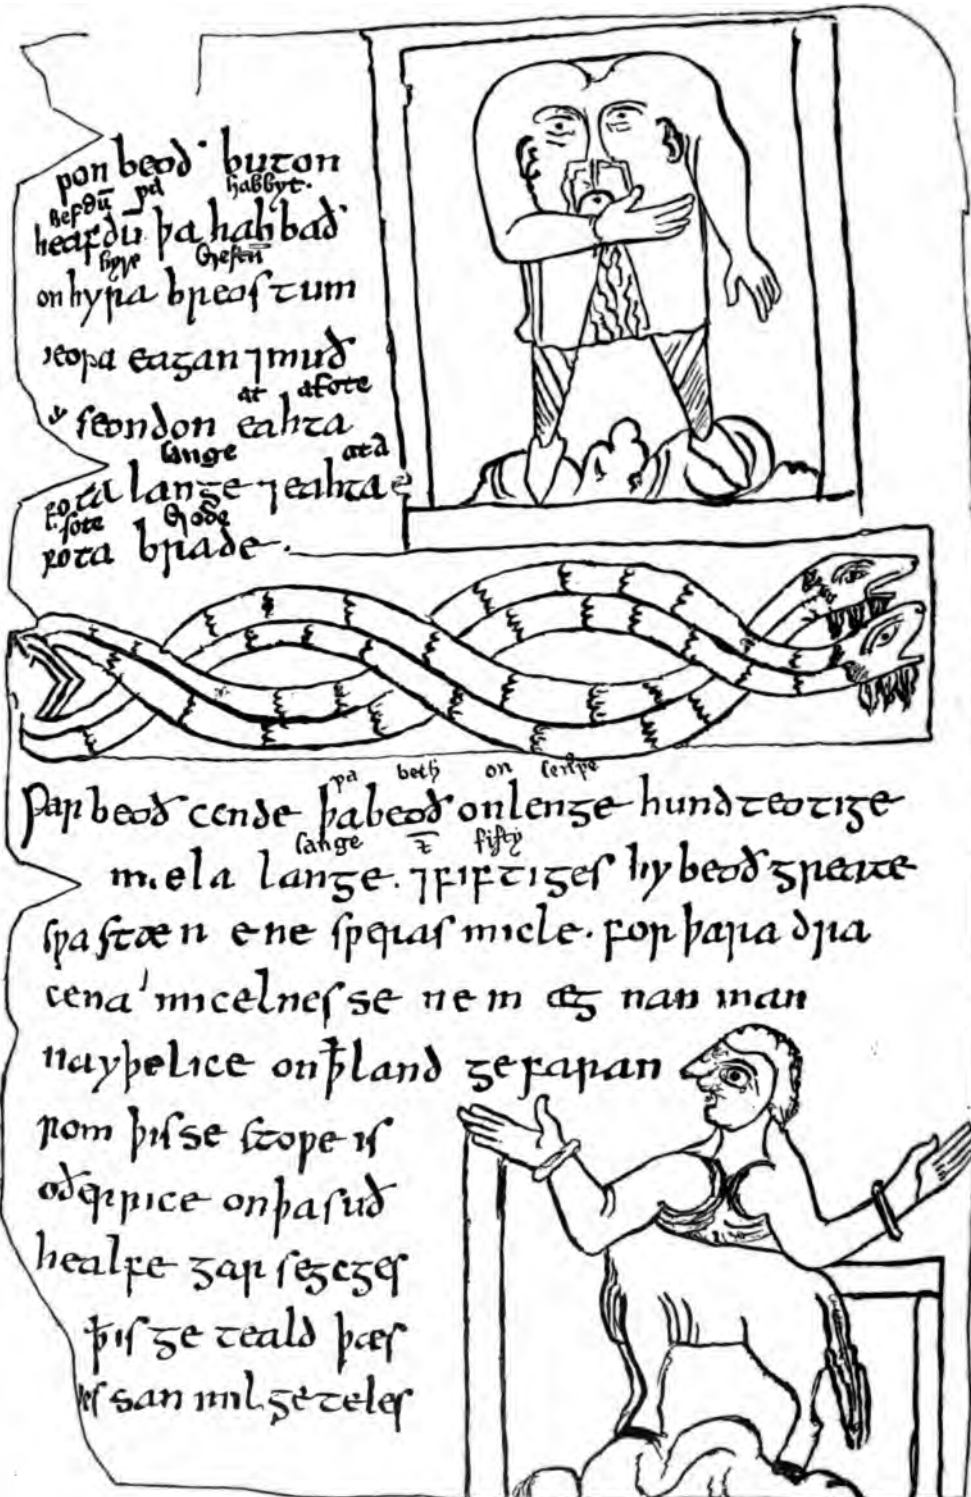 pon beoð buton
hefdū þa habbyt.
heafdū þa habbað
hyre brestū
on hyra breostum
heora eagan ⁊ muð
at afote
seondon eahta
lange ata
fota lange ⁊ eahta
fote brode
fota brade.
þa beth on lenþe
Þar beoð cende þa beoð on lenge hundteotige
lange ⁊ fifty
miela lange. ⁊ fiftiges hy beoð greate
sƿa stæn ene sƿeras micle. for þara dra
cena micelnesse ne m æg nan man
nayþelice on ꝥ land gefaran
rom þisse stoƿe is
oðer rice on þa suð
healfe gar segeges
ꝥ is ge teald þæs
les san mil geteles